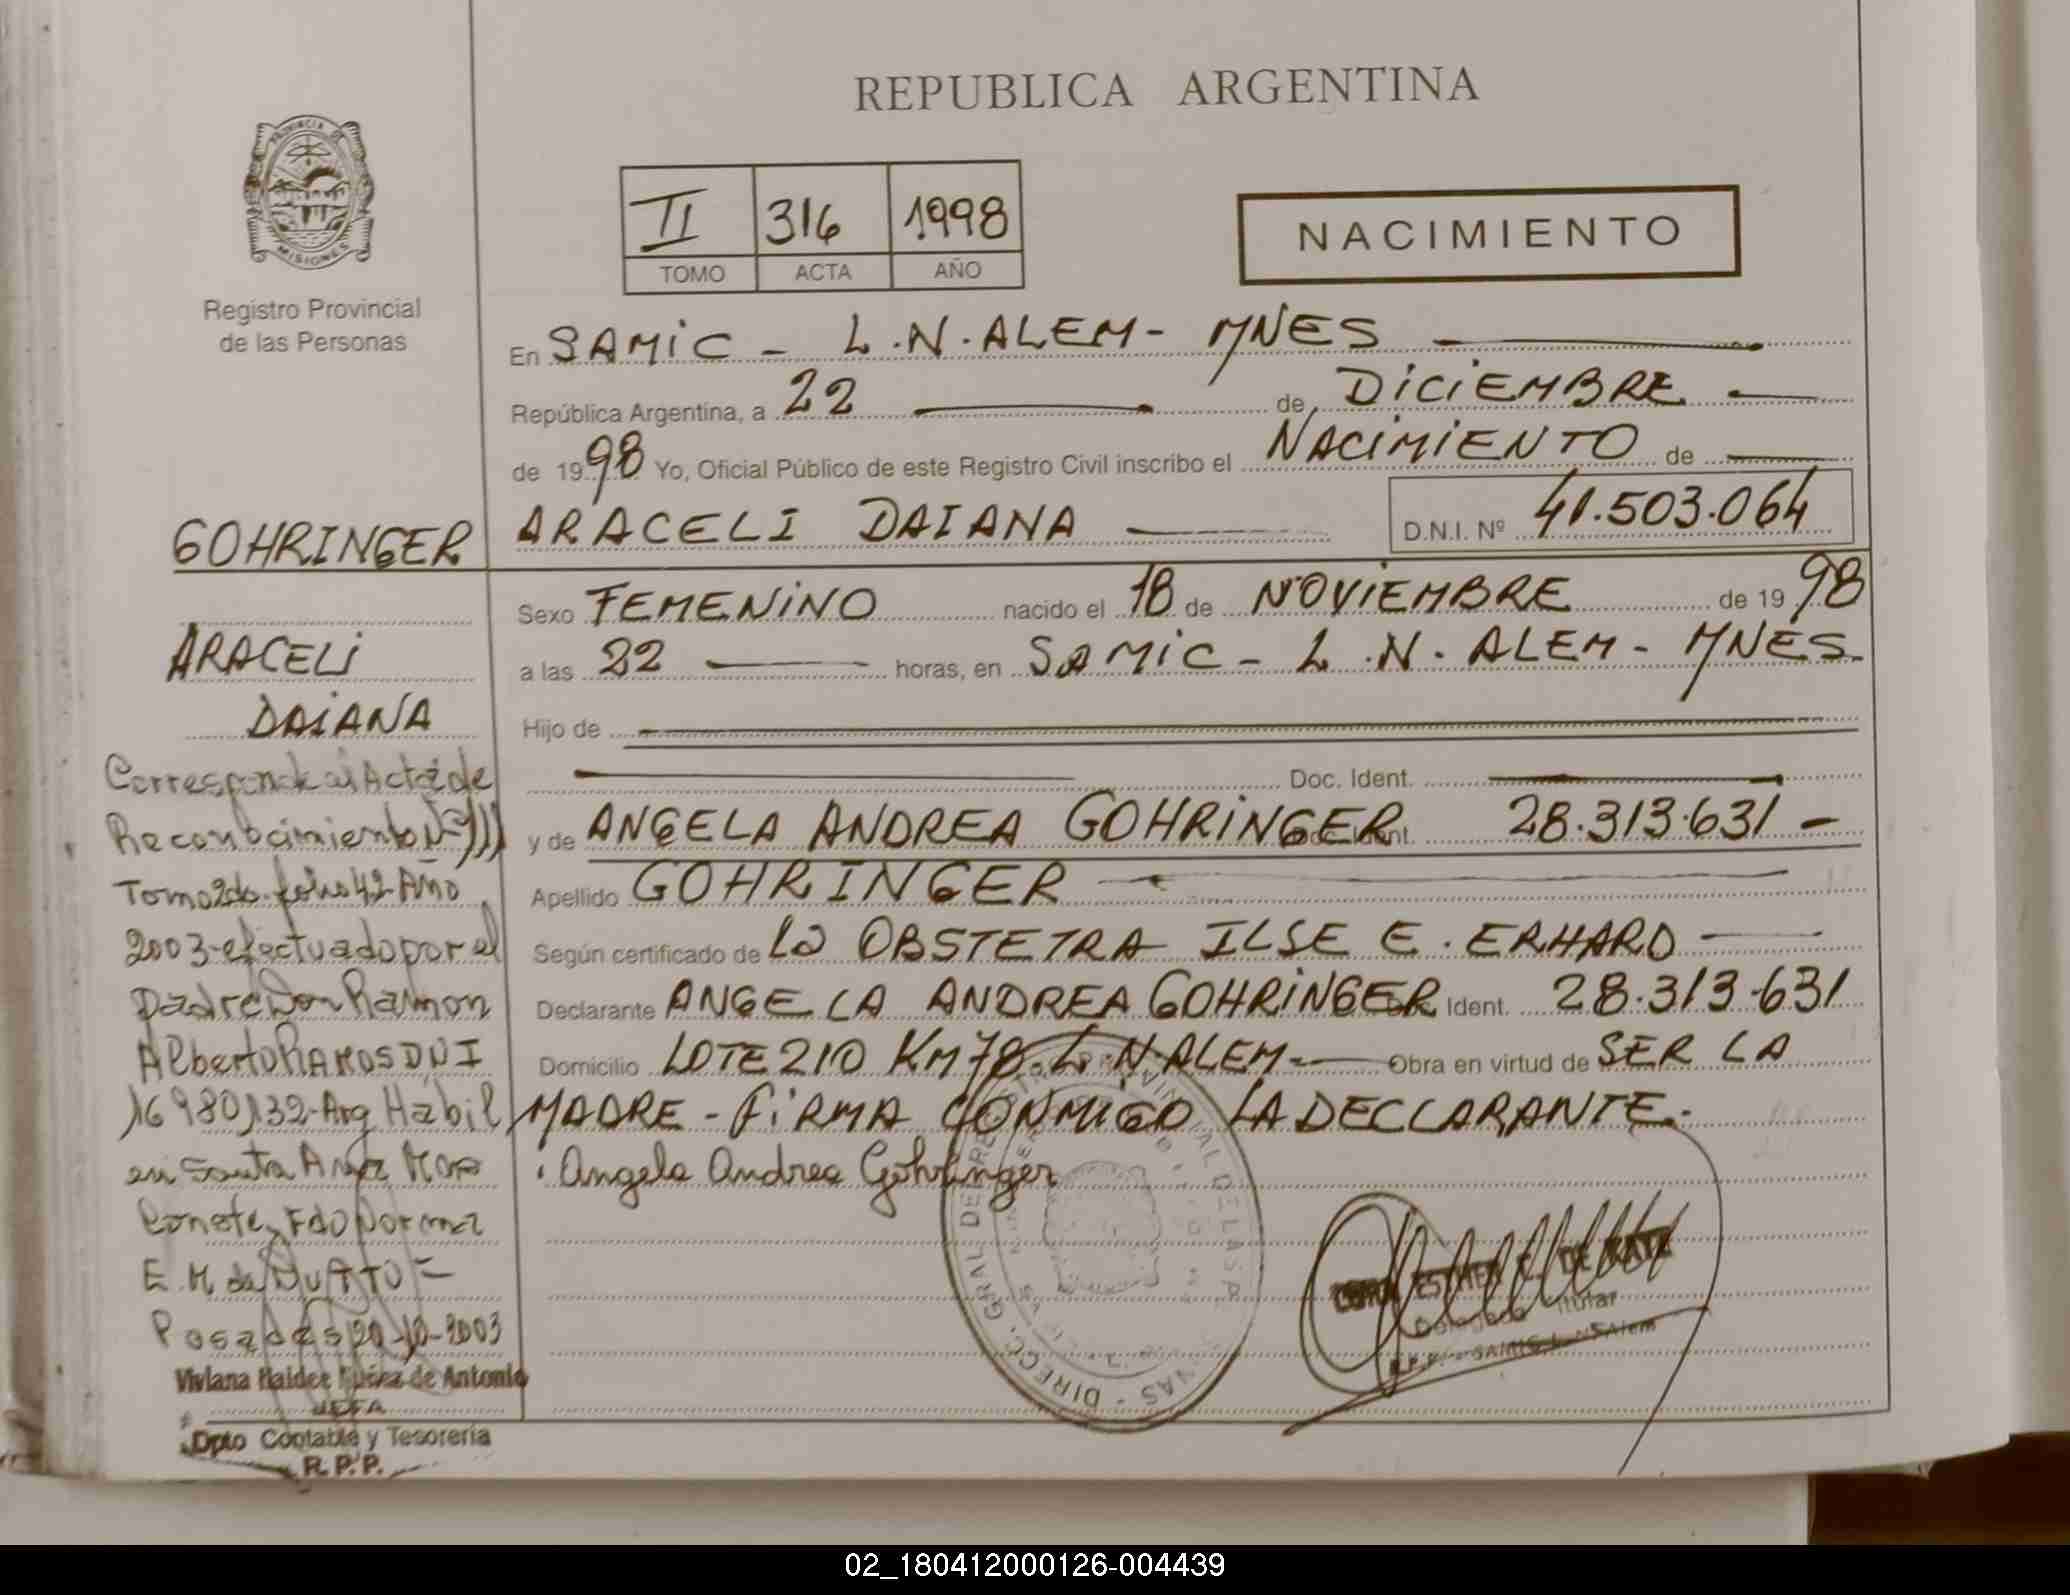 REPUBLICA ARGENTINA
PROVINCIA DE
MISIONES
Registro Provincial
de las Personas
II 316 1998
TOMO ACTA AÑO
NACIMIENTO
En SAMIC - L.N.ALEM - MNES
República Argentina, a 22 de DICIEMBRE
de 1998 Yo, Oficial Público de este Registro Civil inscribo el NACIMIENTO de
ARACELI DAIANA D.N.I. Nº 41.503.064
Sexo FEMENINO nacido el 18 de NOVIEMBRE de 1998
a las 22 horas, en SAMIC - L.N. ALEM - MNES.
Hijo de
Doc. Ident.
y de ANGELA ANDREA GOHRINGER Doc. Ident. 28.313.631 -
Apellido GOHRINGER
Según certificado de La OBSTETRA ILSE E. ERHARD
Declarante ANGELA ANDREA GOHRINGER Ident. 28.313.631
Domicilio LOTE 210 KM 78. L.N.ALEM- Obra en virtud de SER LA
MADRE - FIRMA CONMIGO LA DECLARANTE.
Angela Andrea Gohringer
ESTHER DE
Delegada Titular
R.P.P. - SAMIC L.N.Alem
GOHRINGER
ARACELI
DAIANA
Corresponde al Acta de
Reconocimiento Nº 111
Tomo 2do. folio 42 Año
2003 efectuado por el
Padre Don Ramon
Alberto RAMOS DNI
16980132-Arg Habil
en Santa Ana
Conste, Fdo Norma
E.M. de DUTTO =
Posadas 20-10-2003
Viviana Haidee Núñez de Antonio
JEFA
Dpto Contable y Tesorería
R.P.P.
02_180412000126-004439